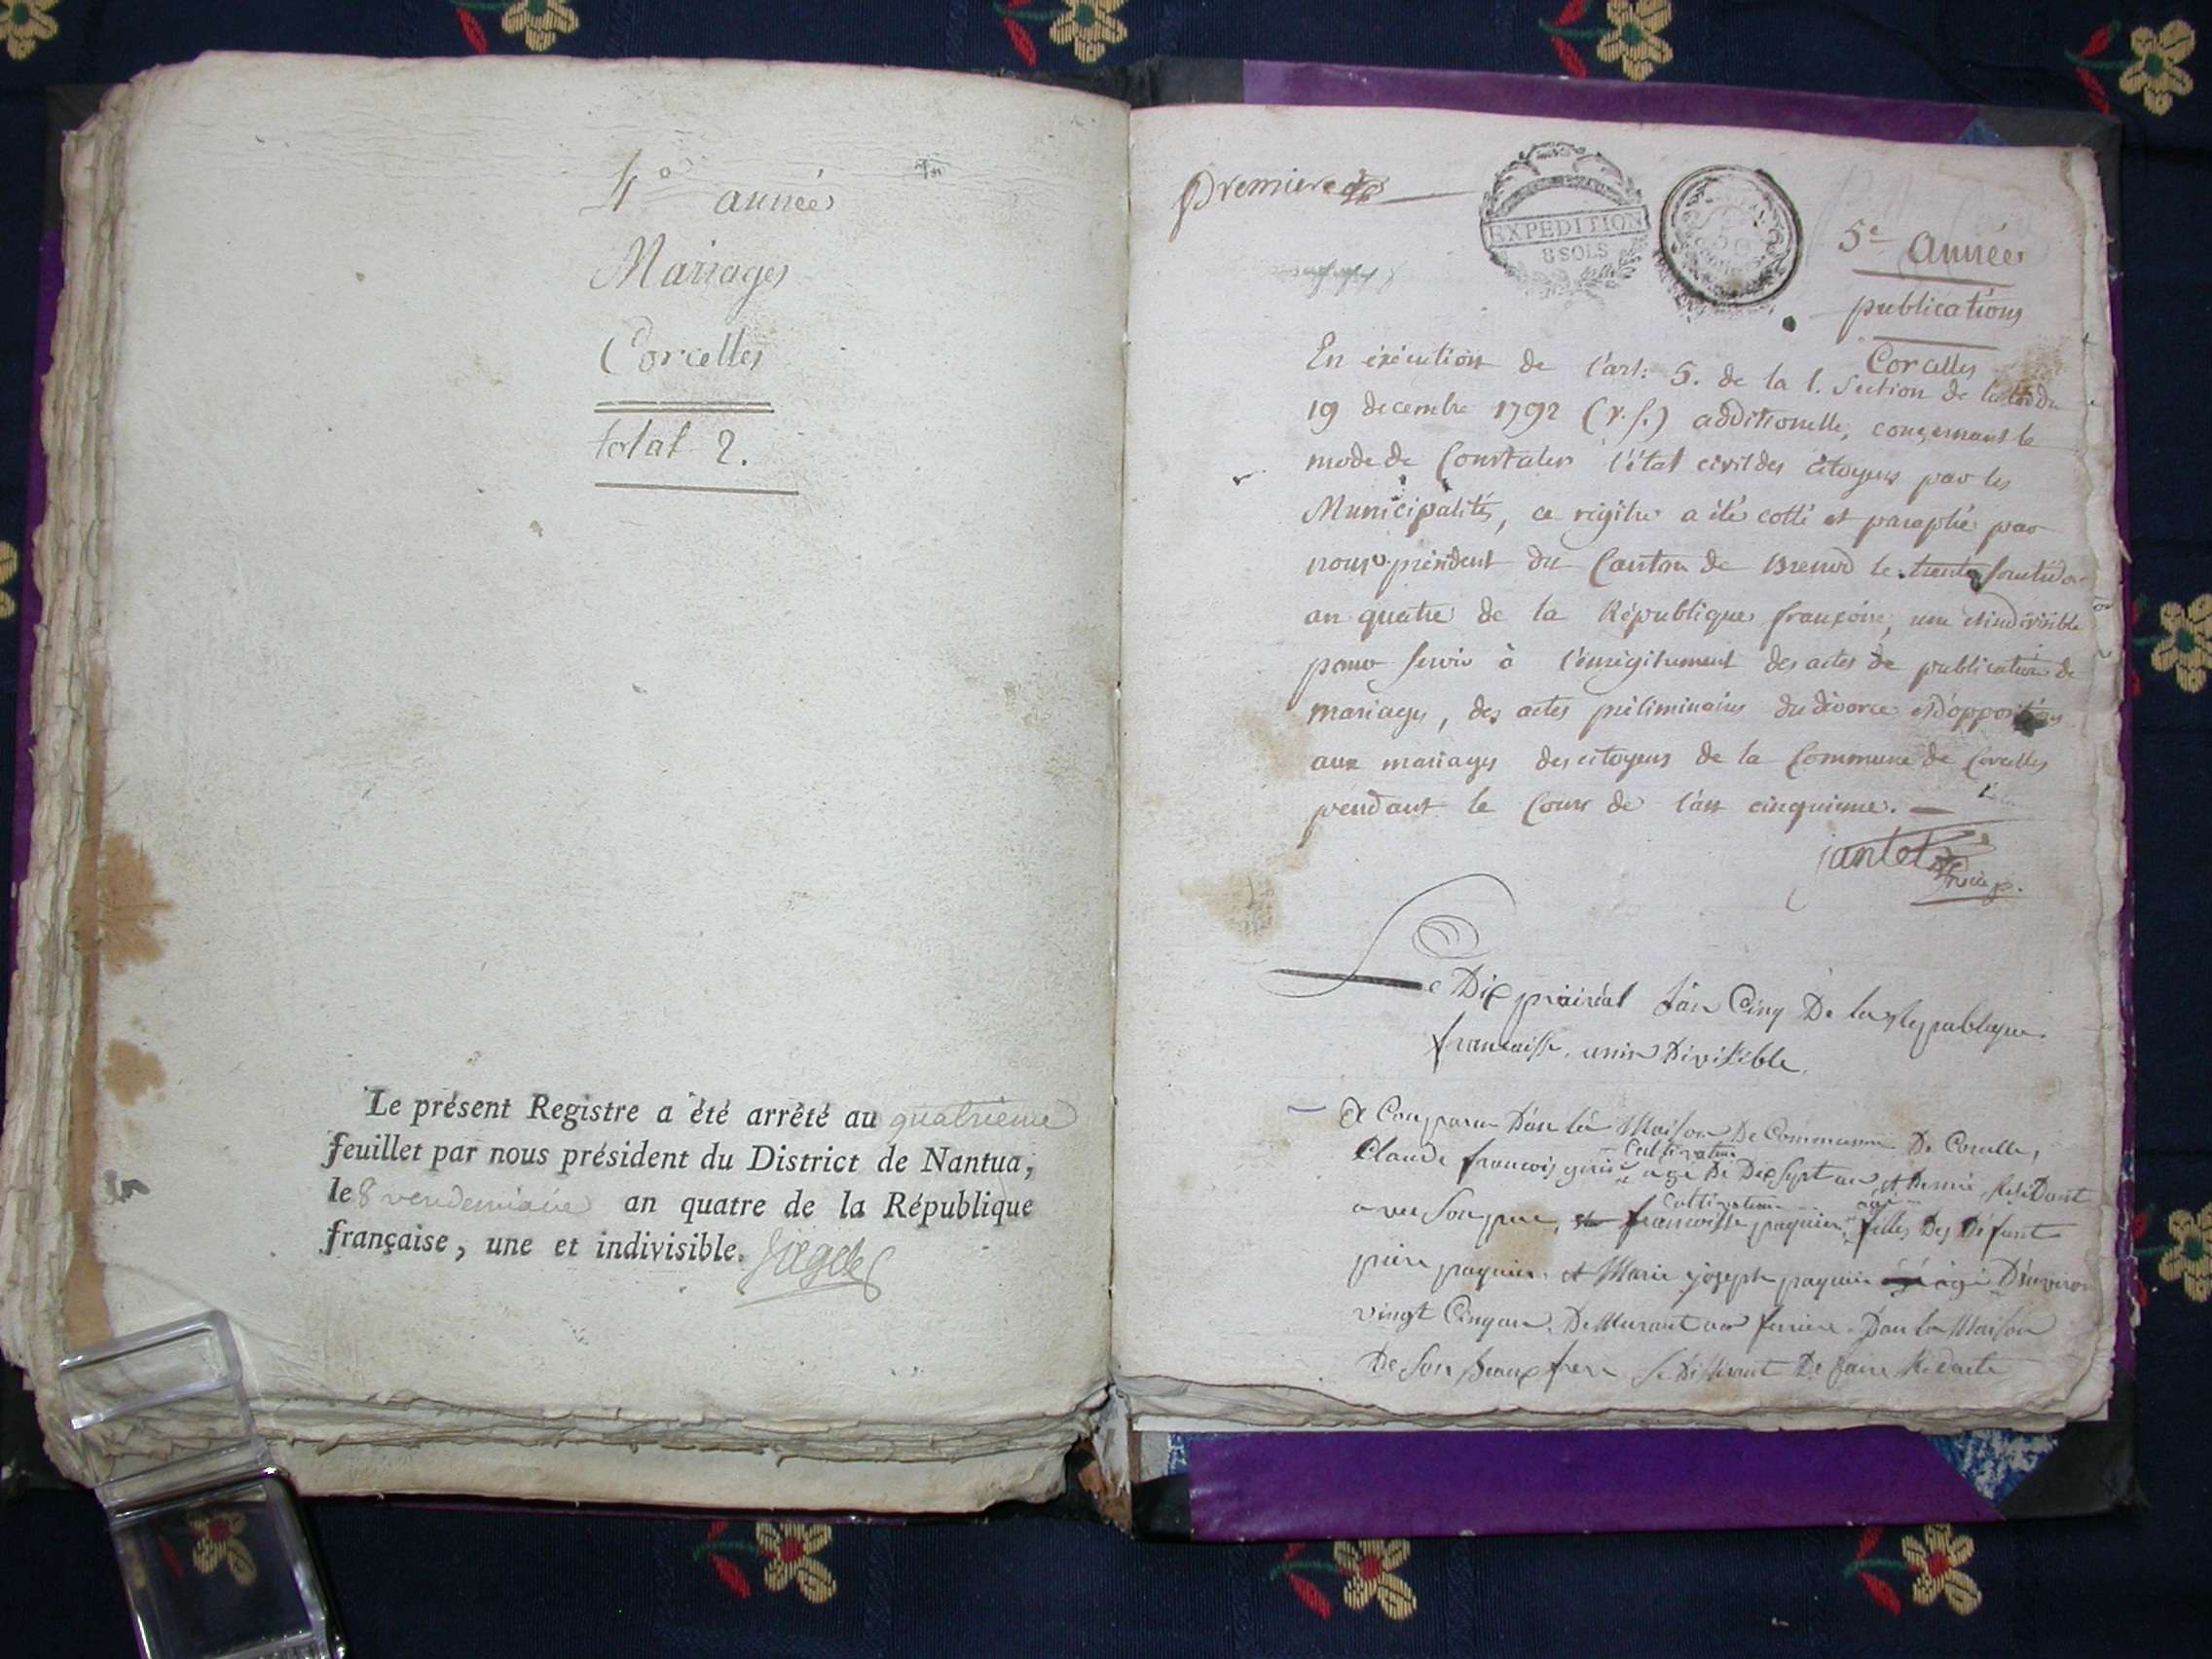 4e année
Mariages
Corcelles
total 2.
Le présent Registre a été arrêté au quatrieme
feuillet par nous président du District de Nantua,
le 8 vendemiaire an quatre de la République
française, une et indivisible.
premiere
EXPEDITION
8 SOLS
5e année
publications
Corcelles
En exécution de l'art: 5. de la 1. Section de la loi du
19 decembre 1792 (v. s.) additionelle, concernant le
mode de Constater l'état civil des citoyens par les
Municipalités, ce régitre a été cotté et paraphé par
nous président du Canton de Brenod le trente fructidor
an quatre de la République françoise, une et indivisible
pour servir à l'enrégitrement des actes de publication de
mariages, des actes préliminaires du divorce et d'oppositions
aux mariages des citoyens de la Commune de Corcelles
pendant le Cours de l'an cinquieme.
jantet
Le Dix prairéal l'an Cinq De la Republique
francaisse, unin Divisible.
A Comparu Dan la Maison De Commune De Corcelle,
Cultivateur
Claude francois age De Dix Sept an et Demi Résidant
Cultivateur
avec Son pere, francoisse paquier filles Des Défunt
piere paquier et Marie joseph paquier agé D'environ
vingt Cinq an. De Murant au ferriere Dan la Maison
De Son Beaux frere De faire